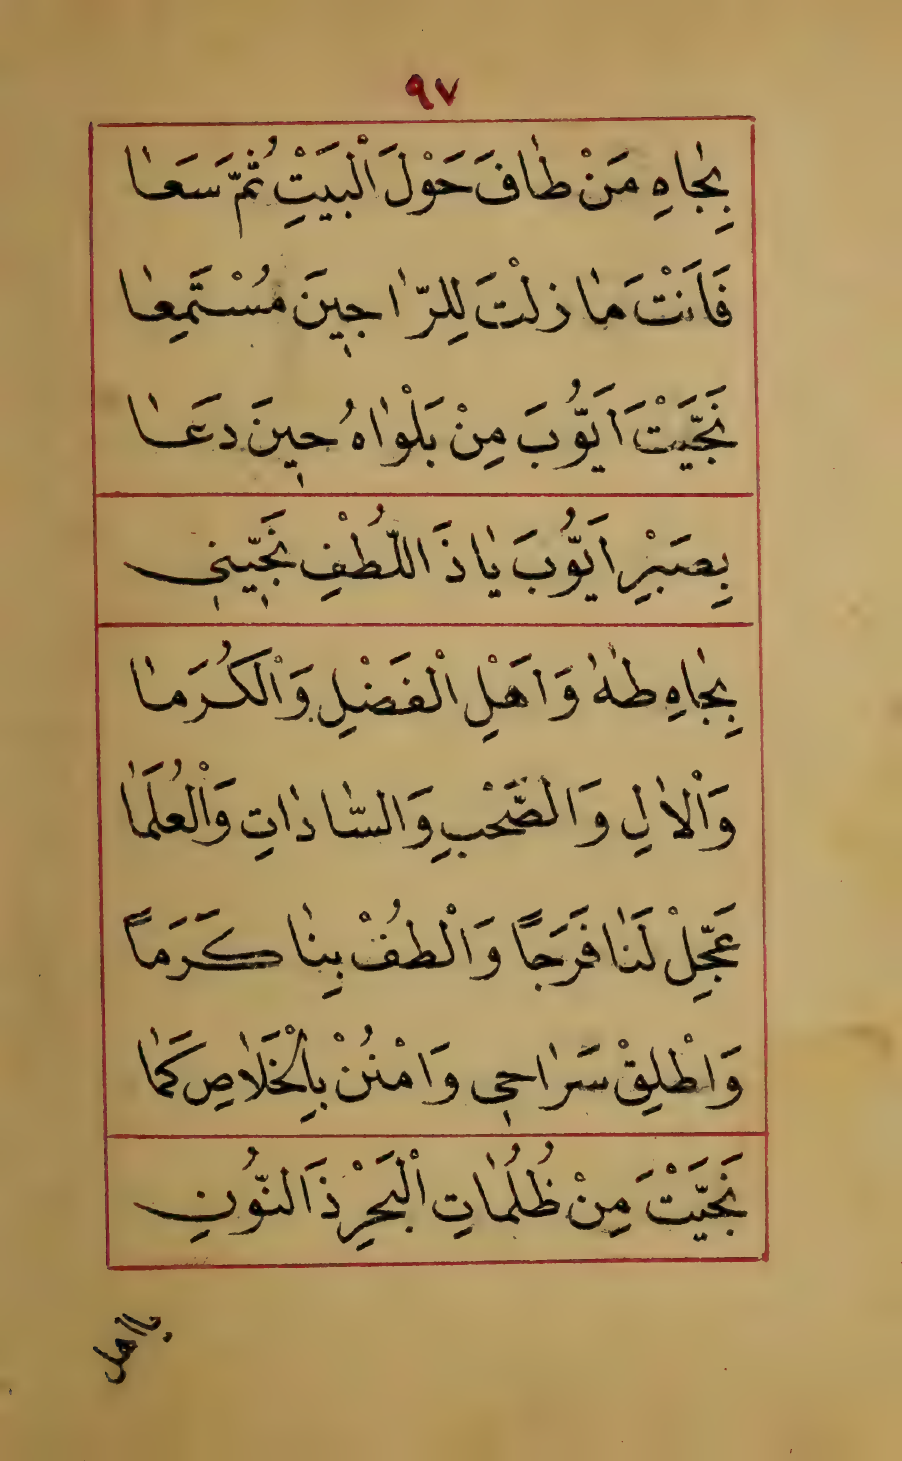 ٩٧
بِجَاهِ مَنْ طَافَ حَوْلَ الْبَيْتِ ثُمَّ سَعَا
فَاَنْتَ مَا زلْتَ لِلرَّاجِينَ مُسْتَمِعَا
نَجَّيْتَ اَيُّوبَ مِنْ بَلْوَاهُ حِينَ دَعَا
بِصَبْرِ اَيُّوبَ يَا ذَا اللُّطْفِ نَجِّينِي
بِجَاهِ طٰهٰ وَاَهْلِ الْفَضْلِ وَالْكُرَمَا
وَالْاٰلِ وَالصَّحْبِ وَالسَّادَاتِ وَالْعُلَمَا
عَجِّلْ لَنَا فَرَجًا وَالْطُفْ بِنَا كَرَمًا
وَاَطْلِقْ سَرَاحِي وَامْنُنْ بِالْخَلَاصِ كَمَا
نَجَّيْتَ مِنْ ظُلُمَاتِ الْبَحْرِ ذَا النُّونِ
يااهل